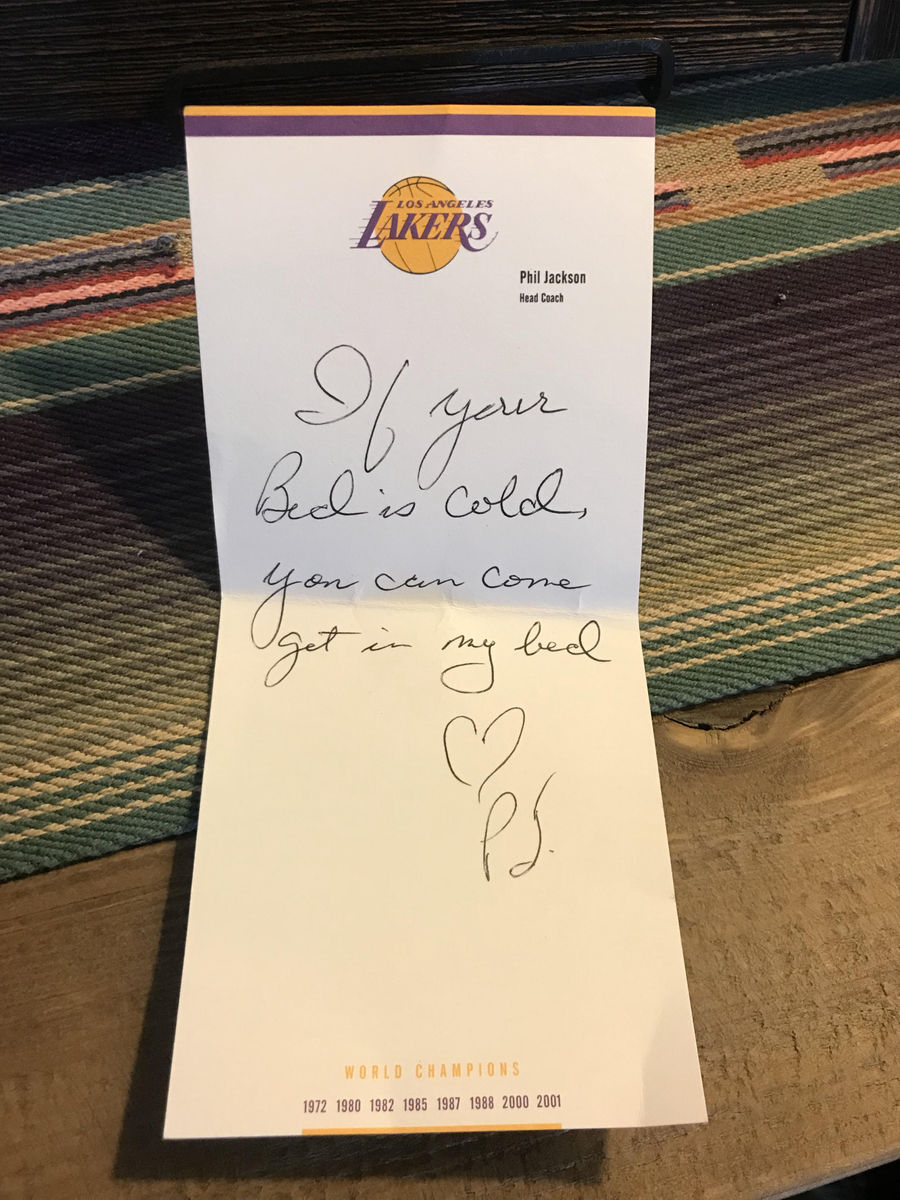 LOS ANGELES
LAKERS
Phil Jackson
Head Coach
If your
Bed is cold,
you can come
get in my bed
PJ.
WORLD CHAMPIONS
1972 1980 1982 1985 1987 1988 2000 2001